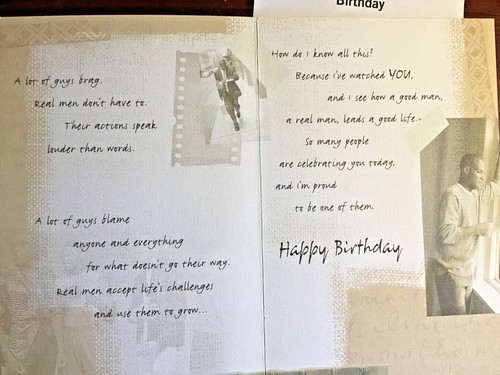 Birthday
A lot of guys brag.
Real men don't have to.
Their actions speak
louder than words.
A lot of guys blame
anyone and everything
for what doesn't go their way.
Real men accept life's challenges
and use them to grow...
How do I know all this?
Because i've watched YOU,
and I see how a good man,
a real man, leads a good life..
So many people
are celebrating you today,
and i'm proud
to be one of them.
Happy Birthday